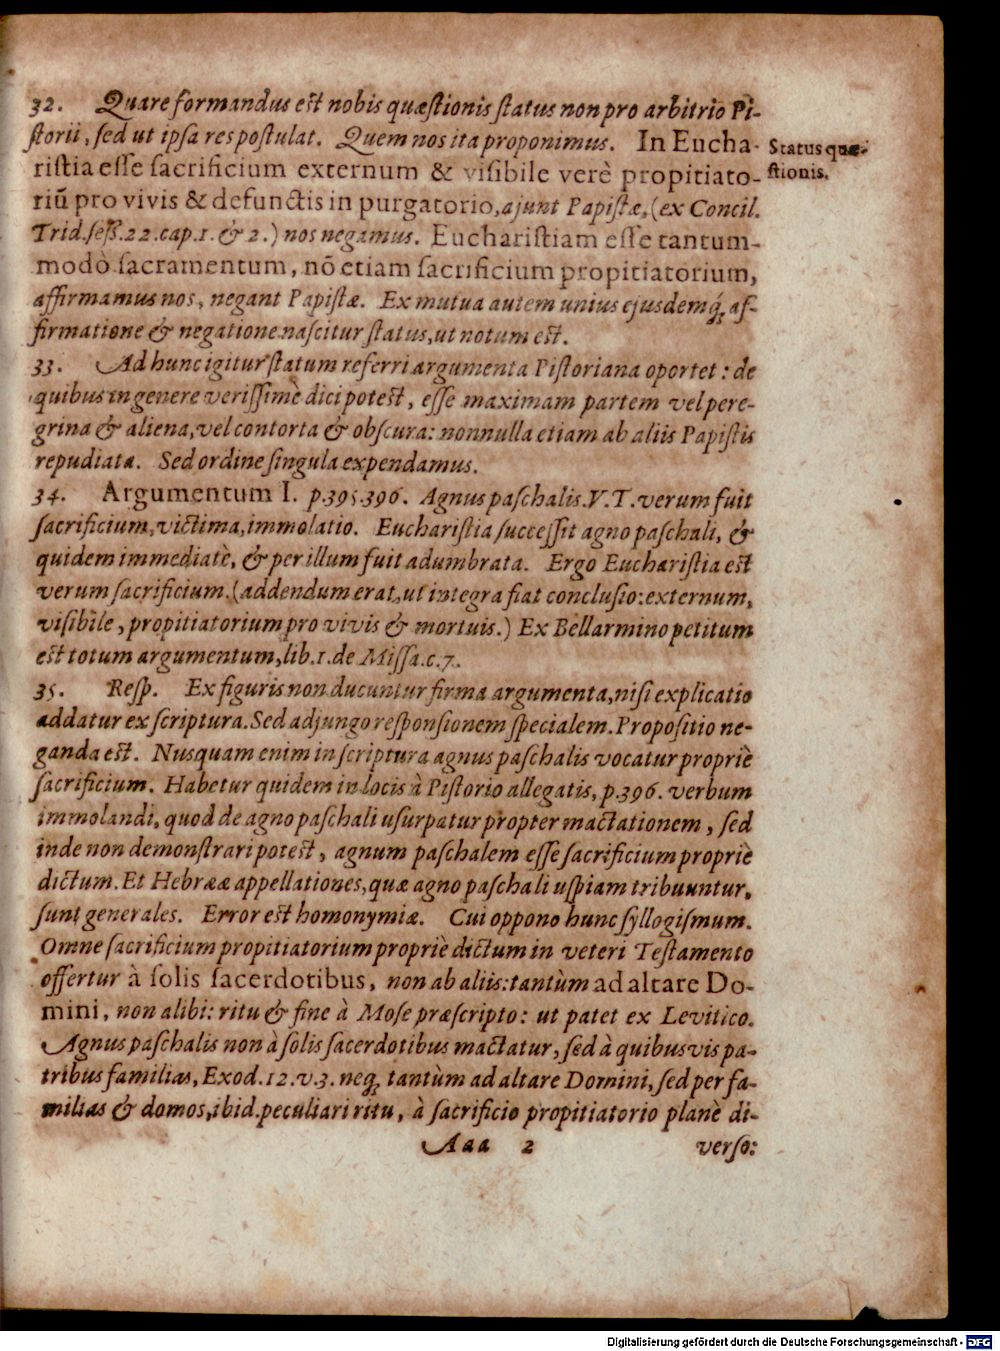 32. Quare formandus est nobis quæstionis status non pro arbitrio Pi-
storii, sed ut ipsa res postulat. Quem nos ita proponimus. In Eucha-
Status quæ-
stionis.
ristia esse sacrificium externum & visibile verè propitiato-
riū pro vivis & defunctis in purgatorio, ajunt Papistæ, (ex Concil.
Trid. sess. 22. cap. 1. & 2.) nos negamus. Eucharistiam esse tantum-
modò sacramentum, nō etiam sacrificium propitiatorium,
affirmamus nos, negant Papistæ. Ex mutua autem unius ejusdemq́; af-
firmatione & negatione nascitur status, ut notum est.
33. Ad hunc igitur statum referri argumenta Pistoriana oportet: de
quibus in genere verissimè dici potest, esse maximam partem vel pere-
grina & aliena, vel contorta & obscura: nonnulla etiam ab aliis Papistis
repudiata. Sed ordine singula expendamus.
34. Argumentum I. p. 395. 396. Agnus paschalis V. T. verum fuit
sacrificium, victima, immolatio. Eucharistia successit agno paschali, &
quidem immediatè, & per illum fuit adumbrata. Ergo Eucharistia est
verum sacrificium. (addendum erat, ut integra fiat conclusio: externum,
visibile, propitiatorium pro vivis & mortuis.) Ex Bellarmino petitum
est totum argumentum, lib. 1. de Missa. c. 7.
35. Resp. Ex figuris non ducuntur firma argumenta, nisi explicatio
addatur ex scriptura. Sed adjungo responsionem specialem. Propositio ne-
ganda est. Nusquam enim in scriptura agnus paschalis vocatur propriè
sacrificium. Habetur quidem in locis à Pistorio allegatis, p. 396. verbum
immolandi, quod de agno paschali usurpatur propter mactationem, sed
inde non demonstrari potest, agnum paschalem esse sacrificium propriè
dictum. Et Hebrææ appellationes, quæ agno paschali uspiam tribuuntur,
sunt generales. Error est homonymiæ. Cui oppono hunc syllogismum.
Omne sacrificium propitiatorium propriè dictum in veteri Testamento
offertur à solis sacerdotibus, non ab aliis: tantùm ad altare Do-
mini, non alibi: ritu & fine à Mose præscripto: ut patet ex Levitico.
Agnus paschalis non à solis sacerdotibus mactatur, sed à quibusvis pa-
tribus familias, Exod. 12. v. 3. neq; tantùm ad altare Domini, sed per fa-
milias & domos, ibid. peculiari ritu, à sacrificio propitiatorio planè di-
Aaa 2 verso:
Digitalisierung gefördert durch die Deutsche Forschungsgemeinschaft - DFG